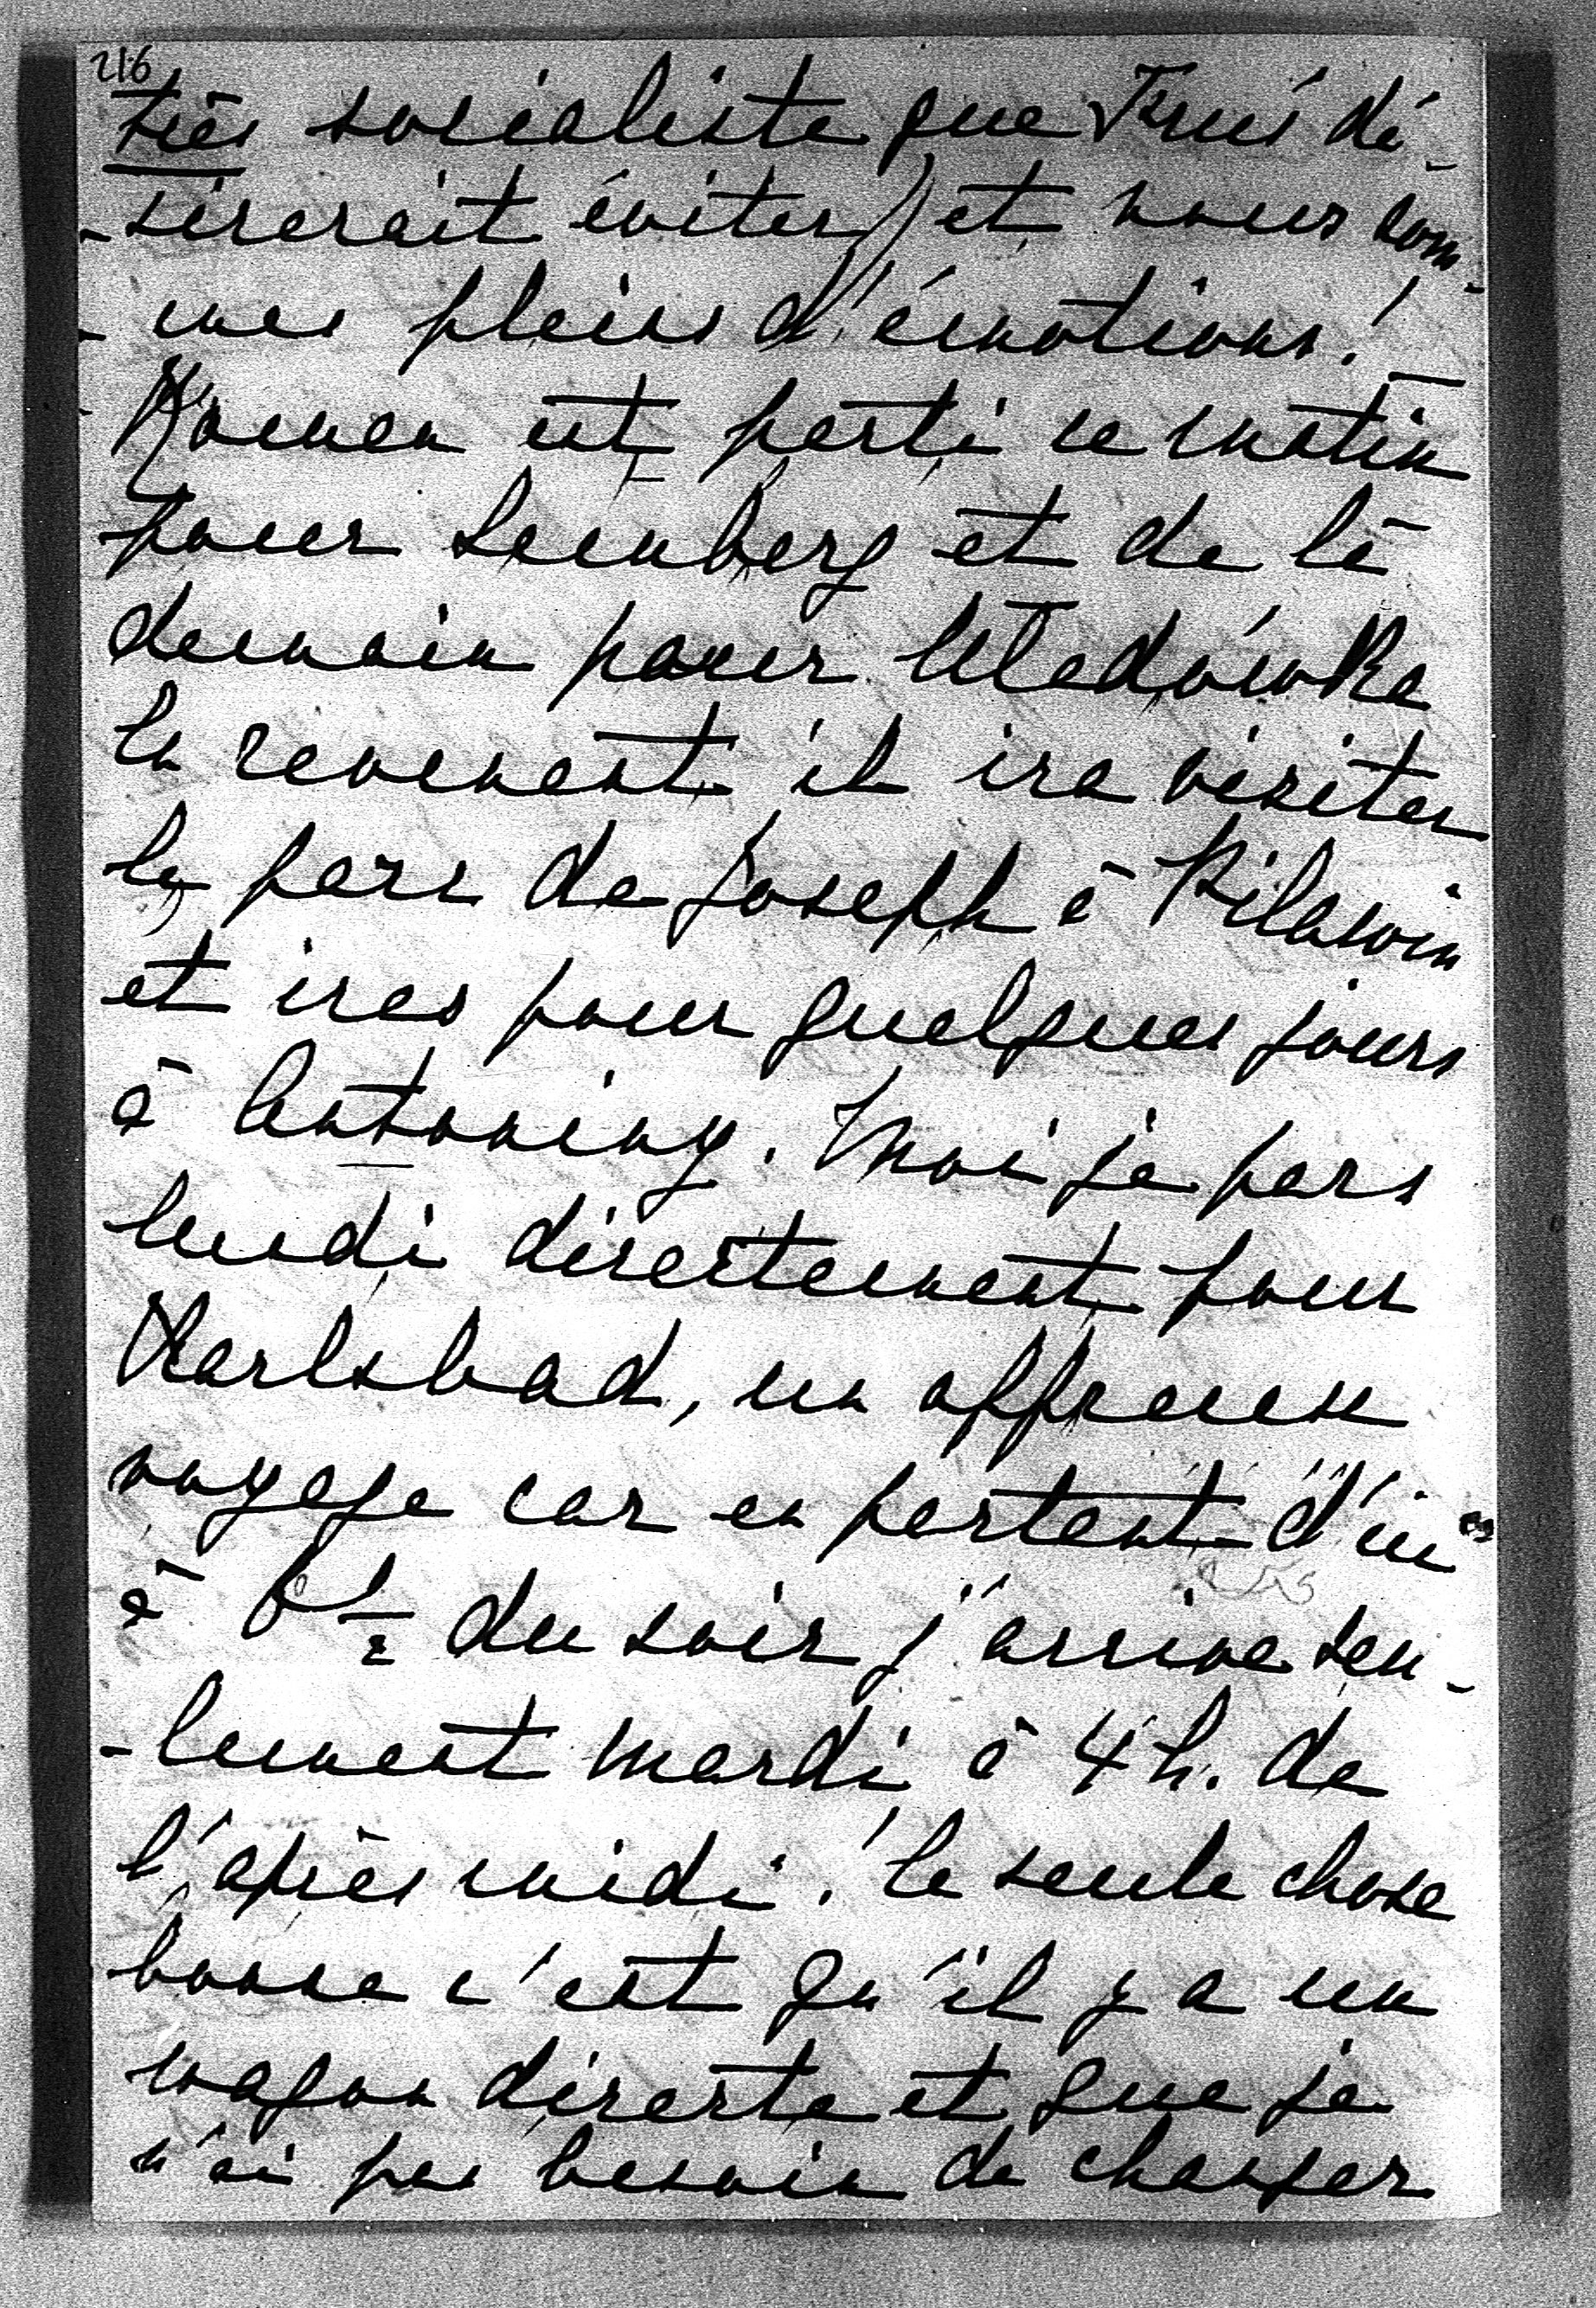 216
très socialiste que Kruś dé-
-sirerait éviter) et nous som-
-mes pleins d'émotions!
Roman est parti ce matin
pour Lemberg et de là
demain pour Uładówka
En revenant il ira visiter
le parc de Joseph à Pilawin
et ira pour quelques jours
à Antoniny. Moi je pars
lundi directement pour
Karlsbad, un affreux
voyage car en partant d'ici
à 8 1/2 du soir j'arrive seu-
-lement mardi à 4 h. de
l'après midi! la seule chose
bonne c'est qu'il y a un
wagon directe et que je
n'ai pas besoin de changer